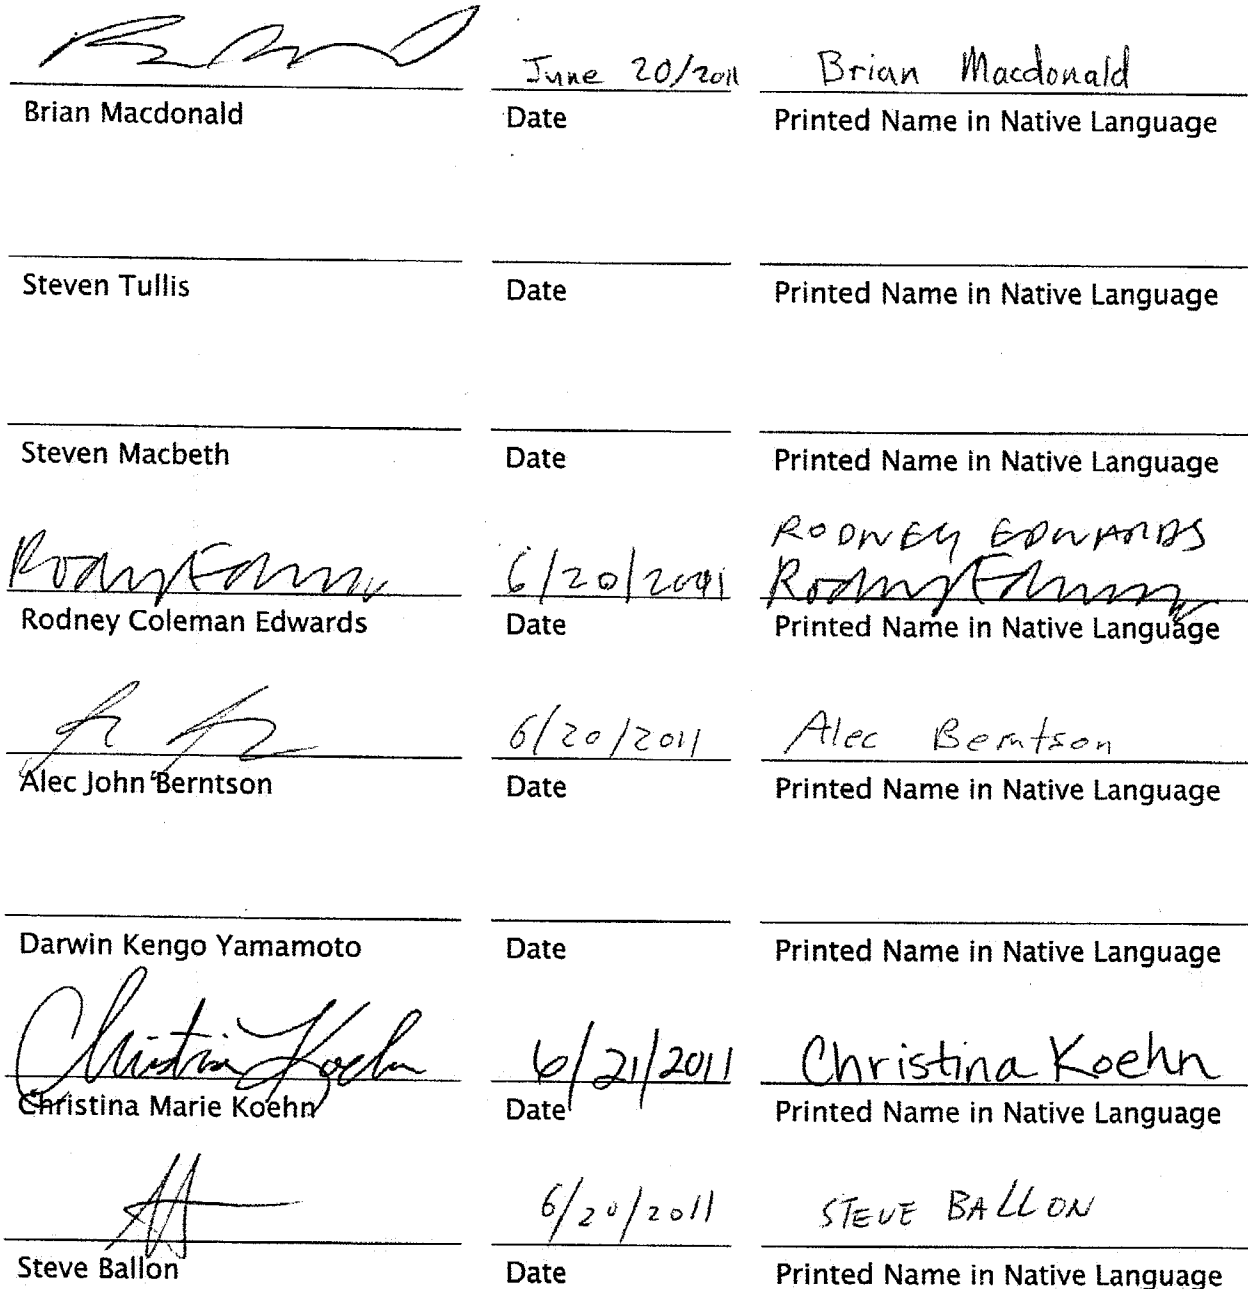 June 20/2011 Brian Macdonald
Brian Macdonald Date Printed Name in Native Language
Steven Tullis Date Printed Name in Native Language
Steven Macbeth Date Printed Name in Native Language
RODNEY EDWARDS
Rodney Edwards 6/20/2011 Rodney Edwards
Rodney Coleman Edwards Date Printed Name in Native Language
6/20/2011 Alec Berntson
Alec John Berntson Date Printed Name in Native Language
Darwin Kengo Yamamoto Date Printed Name in Native Language
Christina Koehn 6/21/2011 Christina Koehn
Christina Marie Koehn Date Printed Name in Native Language
6/20/2011 STEVE BALLON
Steve Ballon Date Printed Name in Native Language